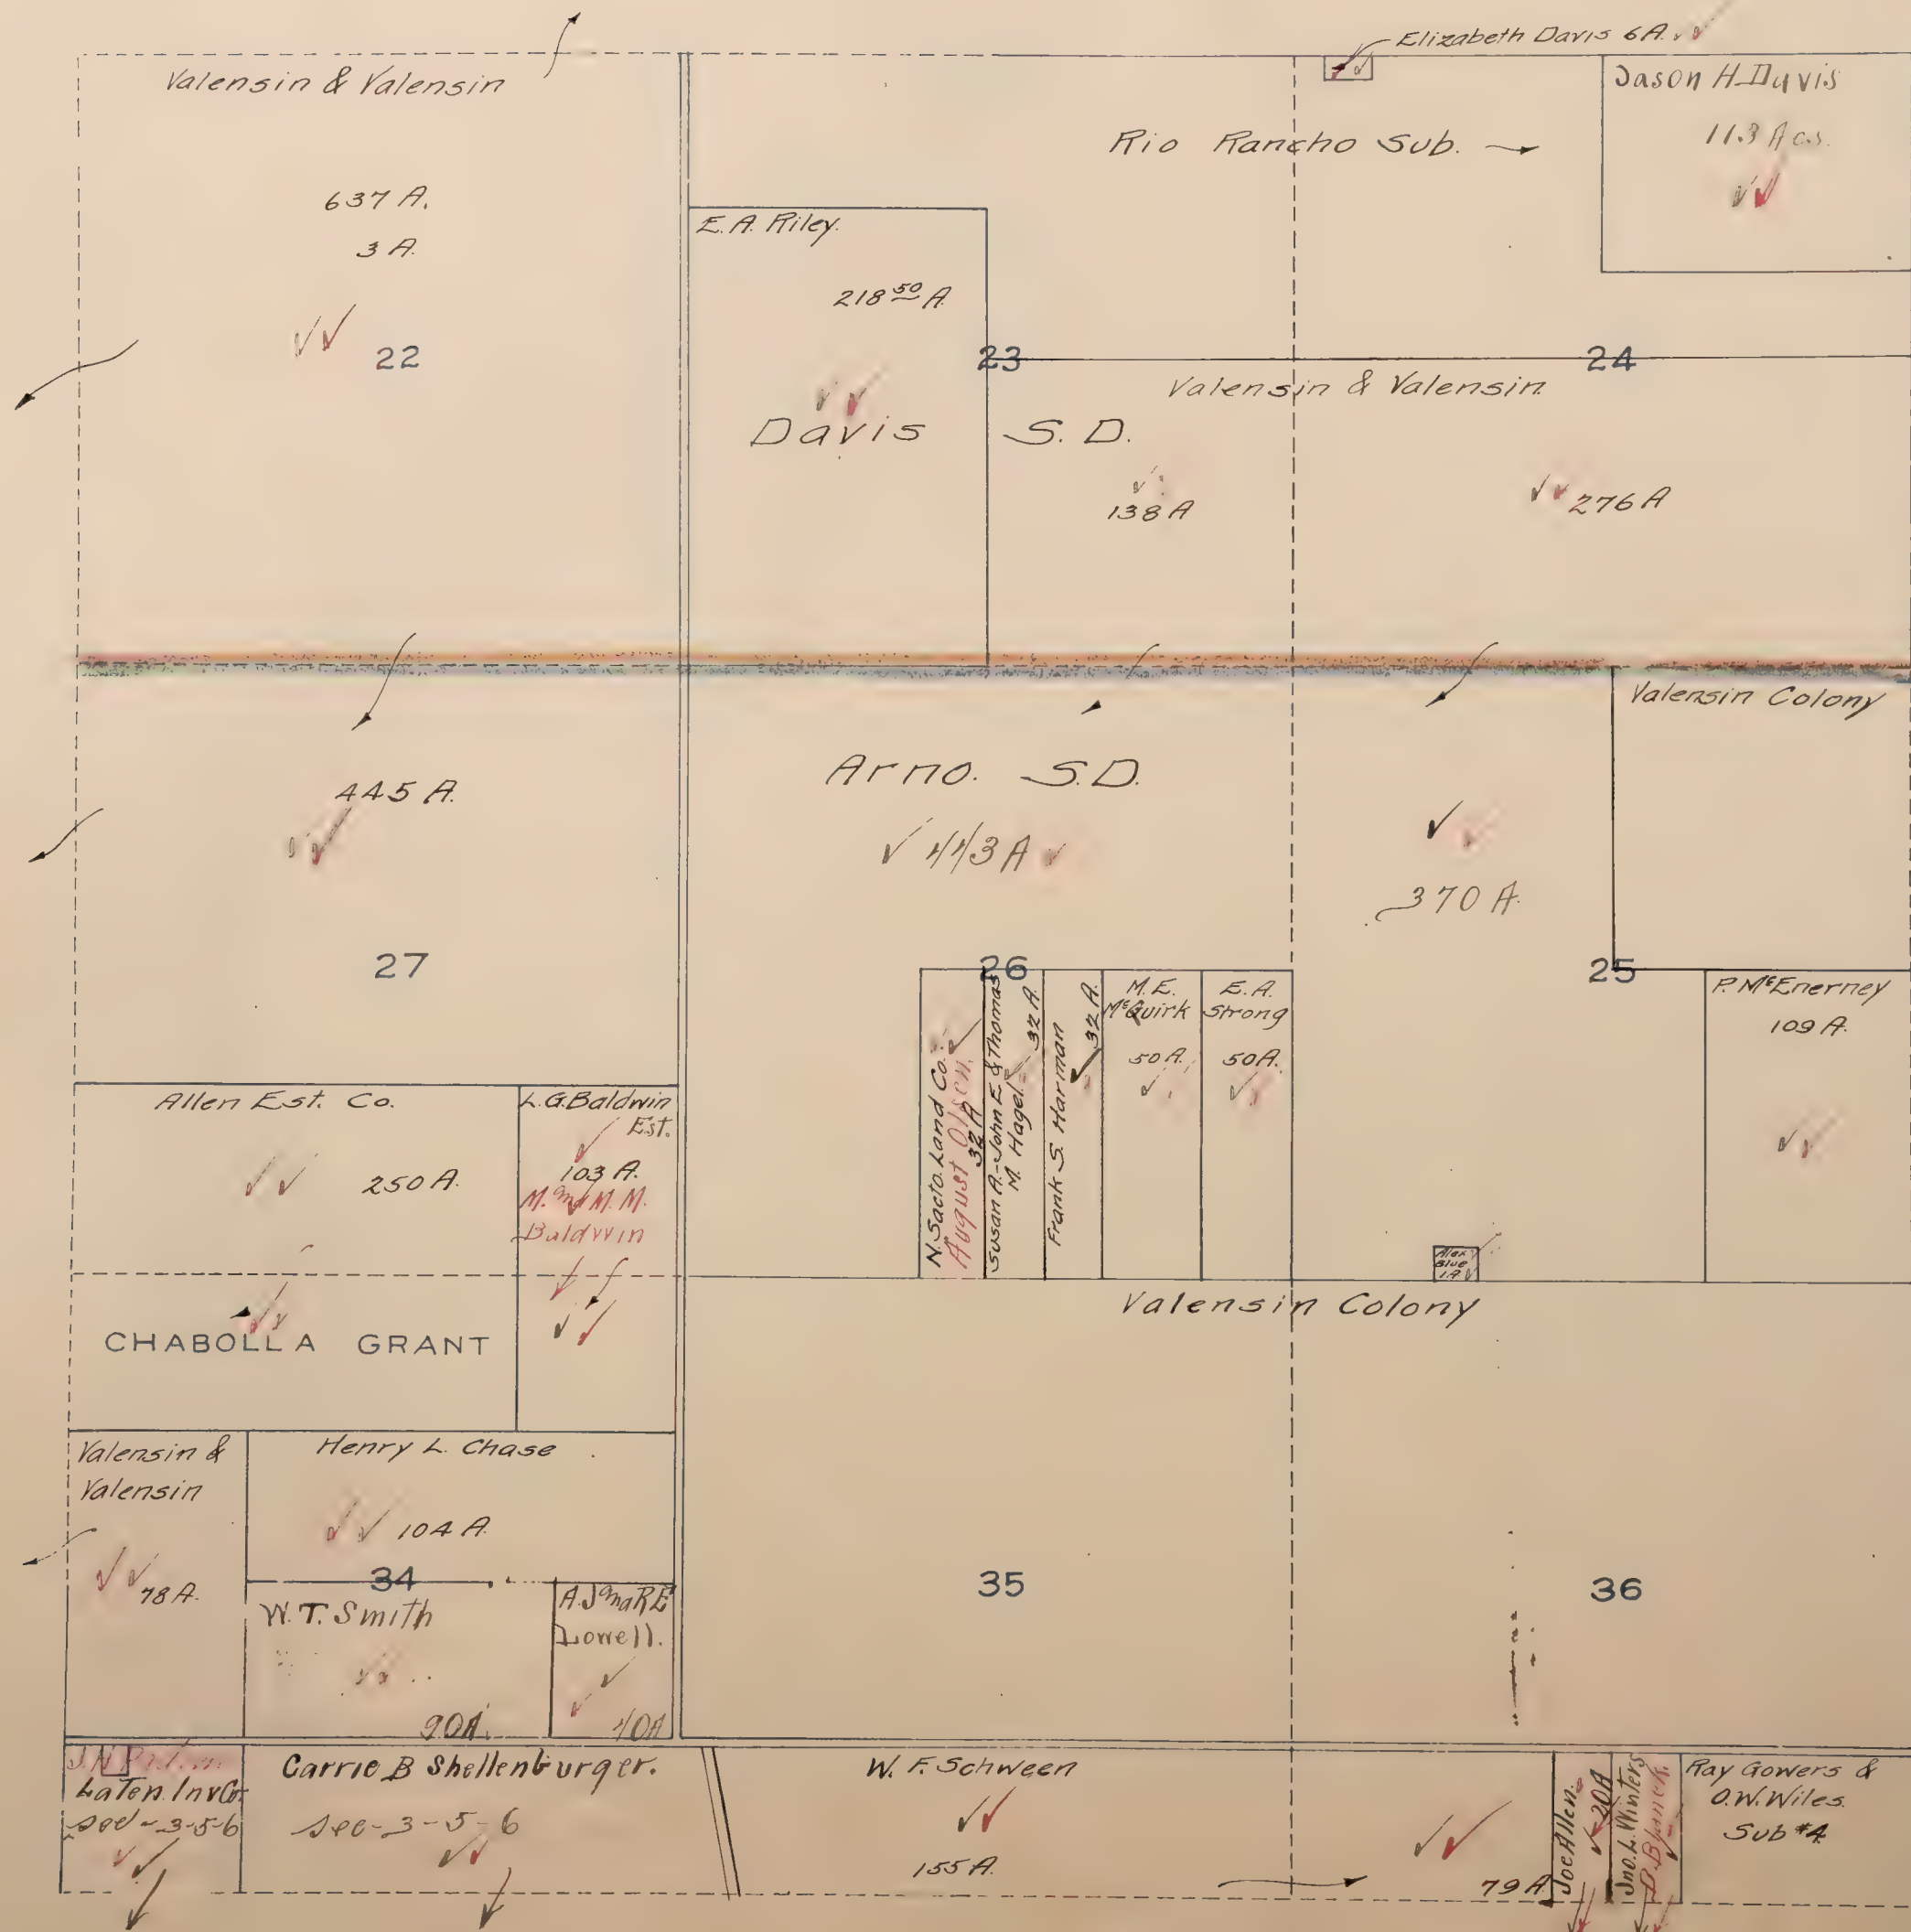 Elizabeth Davis 6A.
Valensin & Valensin
637 A.
3 A.
22
Rio Rancho Sub.
Jason H. Davis
113 Acs.
E. A. Riley.
218 50 A.
23
24
Davis S. D.
Valensin & Valensin.
138 A
276 A
445 A.
27
Arno. S.D.
443 A
370 A.
Valensin Colony
26
25
N. Sacto. Land Co.
August Olsen.
32 A
Susan A.-John E. & Thomas
M. Hagel.
32 A.
Frank S. Harman
32 A.
M. E.
McGuirk
50 A.
E. A.
Strong
50 A.
P. McEnerney
109 A.
Alex
Blue
1 A
Allen Est. Co.
250 A.
L. G. Baldwin
Est.
103 A.
M. and M. M.
Baldwin
CHABOLLA GRANT
Valensin Colony
Valensin &
Valensin
78 A.
Henry L. Chase
104 A.
34
W. T. Smith
90A.
A. J. and R E
Lowell.
40A
35
36
J. N.
LaTen. Inv Co.
see-3-5-6
Carrie B Shellenburger.
see-3-5-6
W. F. Schween
155 A.
79 A
Joe Allen.
20A
Jno. L. Winters
Ray Gowers &
O. W. Wiles.
Sub #4